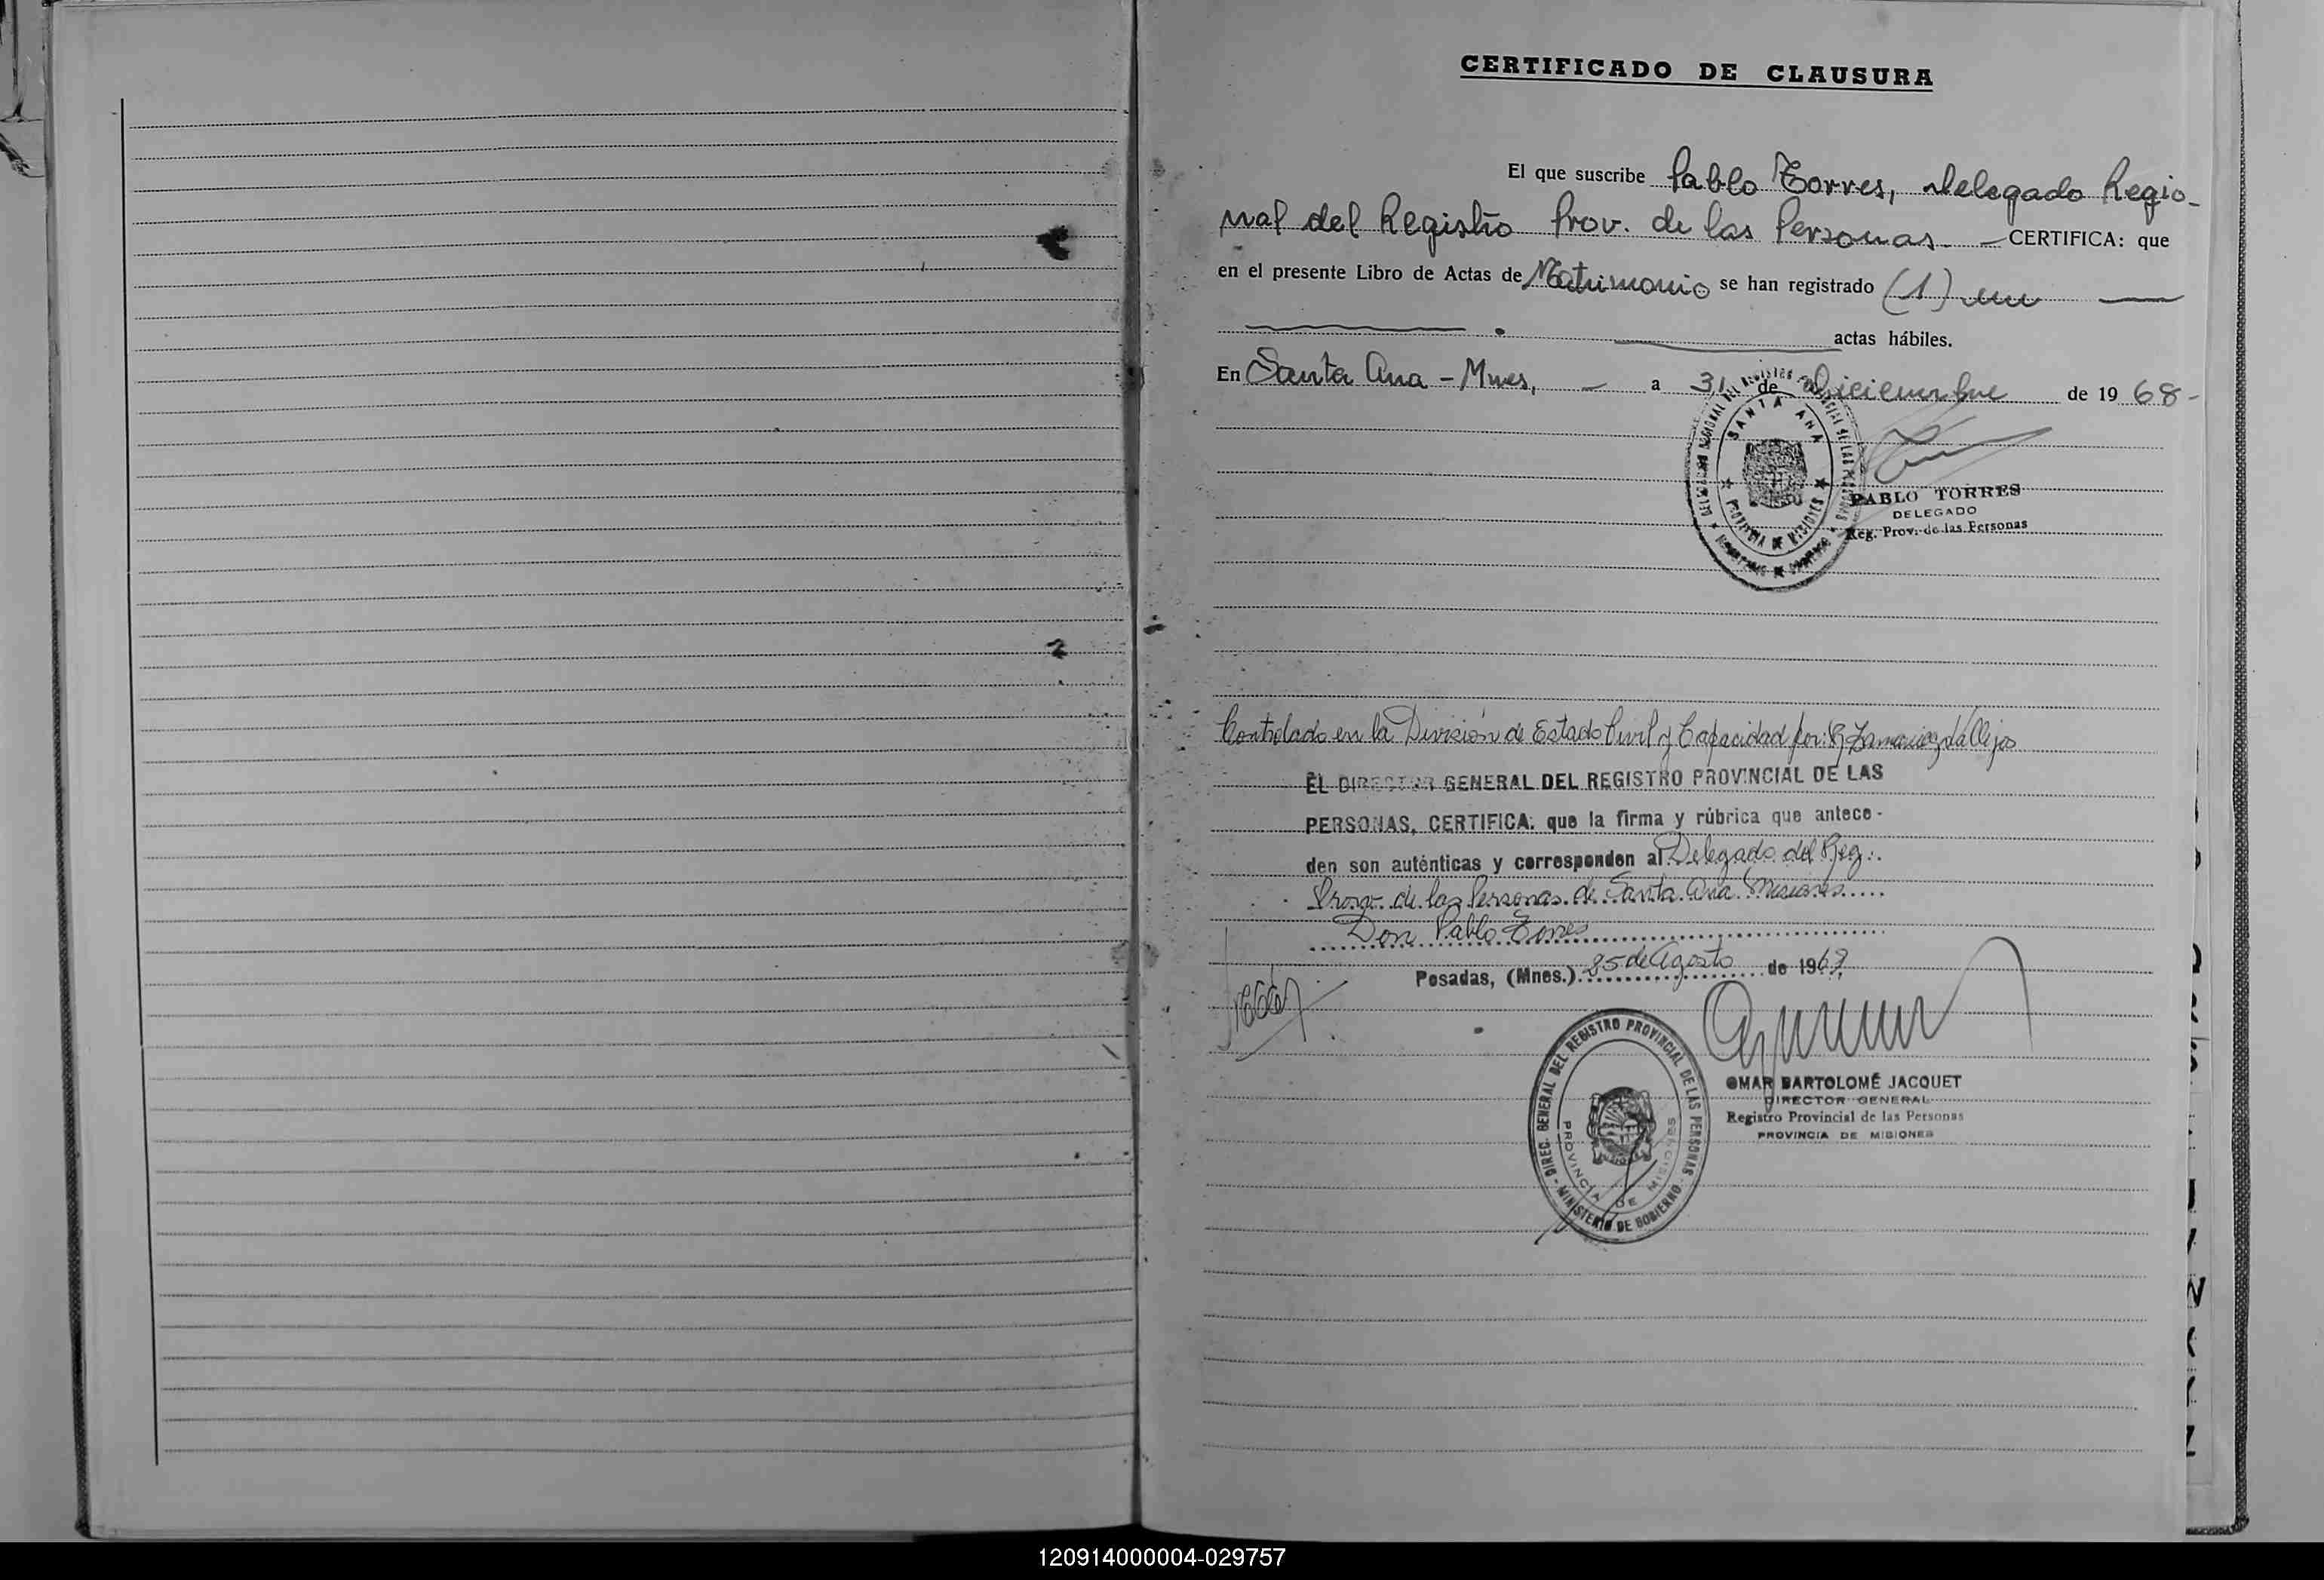 CERTIFICADO DE CLAUSURA
El que suscribe Pablo Torres, Delegado Regio-
nal del Registro Prov. de las Personas. — CERTIFICA: que
en el presente Libro de Actas de Matrimonio se han registrado (1) un —
actas hábiles.
En Santa Ana - Mnes, — a 31 de Diciembre de 19 68-
SANTA ANA
PROVINCIA DE MISIONES
PABLO TORRES
DELEGADO
Reg. Prov. de las Personas
Controlado en la División de Estado Civil y Capacidad por: Vallejos
EL DIRECTOR GENERAL DEL REGISTRO PROVINCIAL DE LAS
PERSONAS, CERTIFICA: que la firma y rúbrica que antece-
den son auténticas y corresponden al Delegado del Reg.
de las Personas de Santa Ana Misiones
Don Pablo Torres
Posadas, (Mnes.) 25 de Agosto de 1969
DIREC. GENERAL DEL REGISTRO PROVINCIAL DE LAS PERSONAS - MINISTERIO DE GOBIERNO -
PROVINCIA DE MISIONES
OMAR BARTOLOMÉ JACQUET
DIRECTOR GENERAL
Registro Provincial de las Personas
PROVINCIA DE MISIONES
120914000004-029757